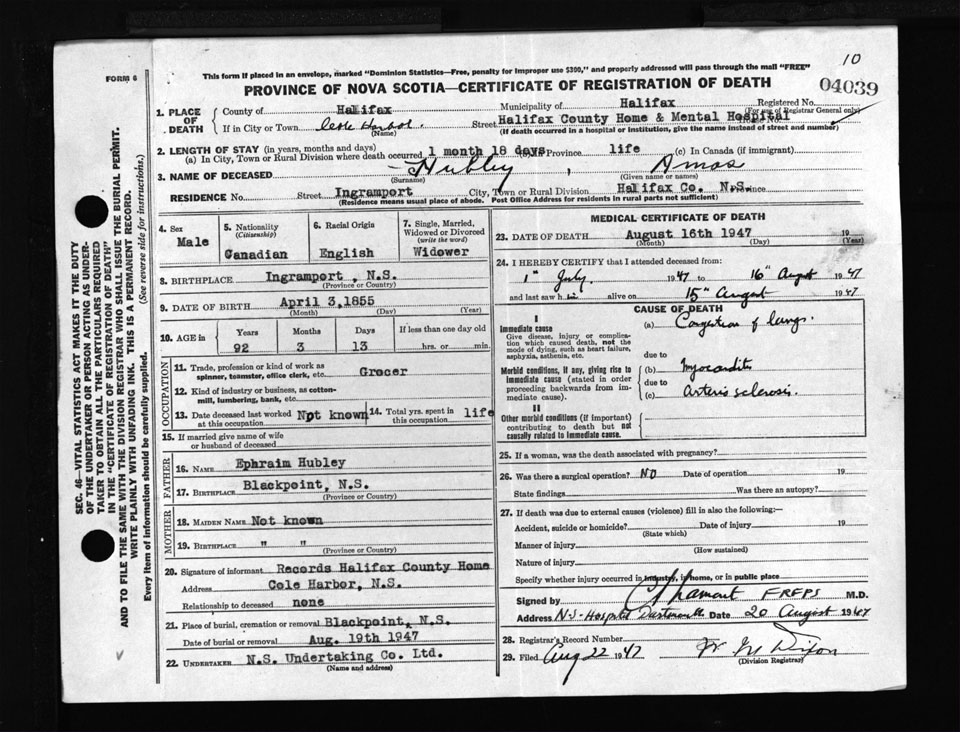 10
FORM 6
This form if placed in an envelope, marked "Dominion Statistics—Free, penalty for improper use $300," and properly addressed will pass through the mail "FREE"
PROVINCE OF NOVA SCOTIA—CERTIFICATE OF REGISTRATION OF DEATH
04039
1. PLACE OF DEATH
County of Halifax Municipality of Halifax Registered No.
(For use of Registrar General only)
If in City or Town Cole Harbor Street Halifax County Home & Mental Hospital
(Name) (If death occurred in a hospital or institution, give the name instead of street and number)
2. LENGTH OF STAY (in years, months and days)
(a) In City, Town or Rural Division where death occurred 1 month 18 days (b) In Province life (c) In Canada (if immigrant)
3. NAME OF DECEASED Hubley, Amos
(Surname) (Given name or names)
RESIDENCE No. Street Ingramport City, Town or Rural Division Halifax Co. N.S. Province
(Residence means usual place of abode. Post Office Address for residents in rural parts not sufficient)
4. Sex Male
5. Nationality (Citizenship) Canadian
6. Racial Origin English
7. Single, Married, Widowed or Divorced (write the word) Widower
8. BIRTHPLACE Ingramport, N.S.
(Province or Country)
9. DATE OF BIRTH April 3,1855
(Month) (Day) (Year)
10. AGE in Years Months Days If less than one day old
92 3 13 hrs. or min.
OCCUPATION
11. Trade, profession or kind of work as spinner, teamster, office clerk, etc. Grocer
12. Kind of industry or business, as cotton-mill, lumbering, bank, etc.
13. Date deceased last worked at this occupation Not known 14. Total yrs. spent in this occupation life
15. If married give name of wife or husband of deceased
FATHER
16. NAME Ephraim Hubley
17. BIRTHPLACE Blackpoint, N.S.
(Province or Country)
MOTHER
18. MAIDEN NAME Not known
19. BIRTHPLACE " "
(Province or Country)
20. Signature of informant Records Halifax County Home
Address Cole Harbor, N.S.
Relationship to deceased none
21. Place of burial, cremation or removal Blackpoint, N.S.
Date of burial or removal Aug. 19th 1947
22. UNDERTAKER N.S. Undertaking Co. Ltd.
(Name and address)
MEDICAL CERTIFICATE OF DEATH
23. DATE OF DEATH August 16th 1947 19
(Month) (Day) (Year)
24. I HEREBY CERTIFY that I attended deceased from:
1" July. 1947 to 16" August 1947
and last saw him alive on 15" August 1947
CAUSE OF DEATH
I
Immediate cause
Give disease, injury or complication which caused death, not the mode of dying, such as heart failure, asphyxia, asthenia, etc.
(a) Congestion of lungs.
due to
Morbid conditions, if any, giving rise to immediate cause (stated in order proceeding backwards from immediate cause).
(b) Myocarditis
due to
(c) Arterio sclerosis.
II
Other morbid conditions (if important) contributing to death but not causally related to immediate cause.
25. If a woman, was the death associated with pregnancy?
26. Was there a surgical operation? NO Date of operation 19
State findings Was there an autopsy?
27. If death was due to external causes (violence) fill in also the following:—
Accident, suicide or homicide? Date of injury 19
(State which)
Manner of injury
(How sustained)
Nature of injury
Specify whether injury occurred in industry, in home, or in public place
Signed by M.D.
Address N.S. Hospital Dartmouth Date 20 August 1947
28. Registrar's Record Number
29. Filed Aug 22 1947 W M Dixon
(Division Registrar)
SEC. 46—VITAL STATISTICS ACT MAKES IT THE DUTY
OF THE UNDERTAKER OR PERSON ACTING AS UNDER-
TAKER TO OBTAIN ALL THE PARTICULARS REQUIRED
IN THE "CERTIFICATE OF REGISTRATION OF DEATH"
AND TO FILE THE SAME WITH THE DIVISION REGISTRAR WHO SHALL ISSUE THE BURIAL PERMIT.
WRITE PLAINLY WITH UNFADING INK. THIS IS A PERMANENT RECORD.
Every item of information should be carefully supplied. (See reverse side for instructions.)